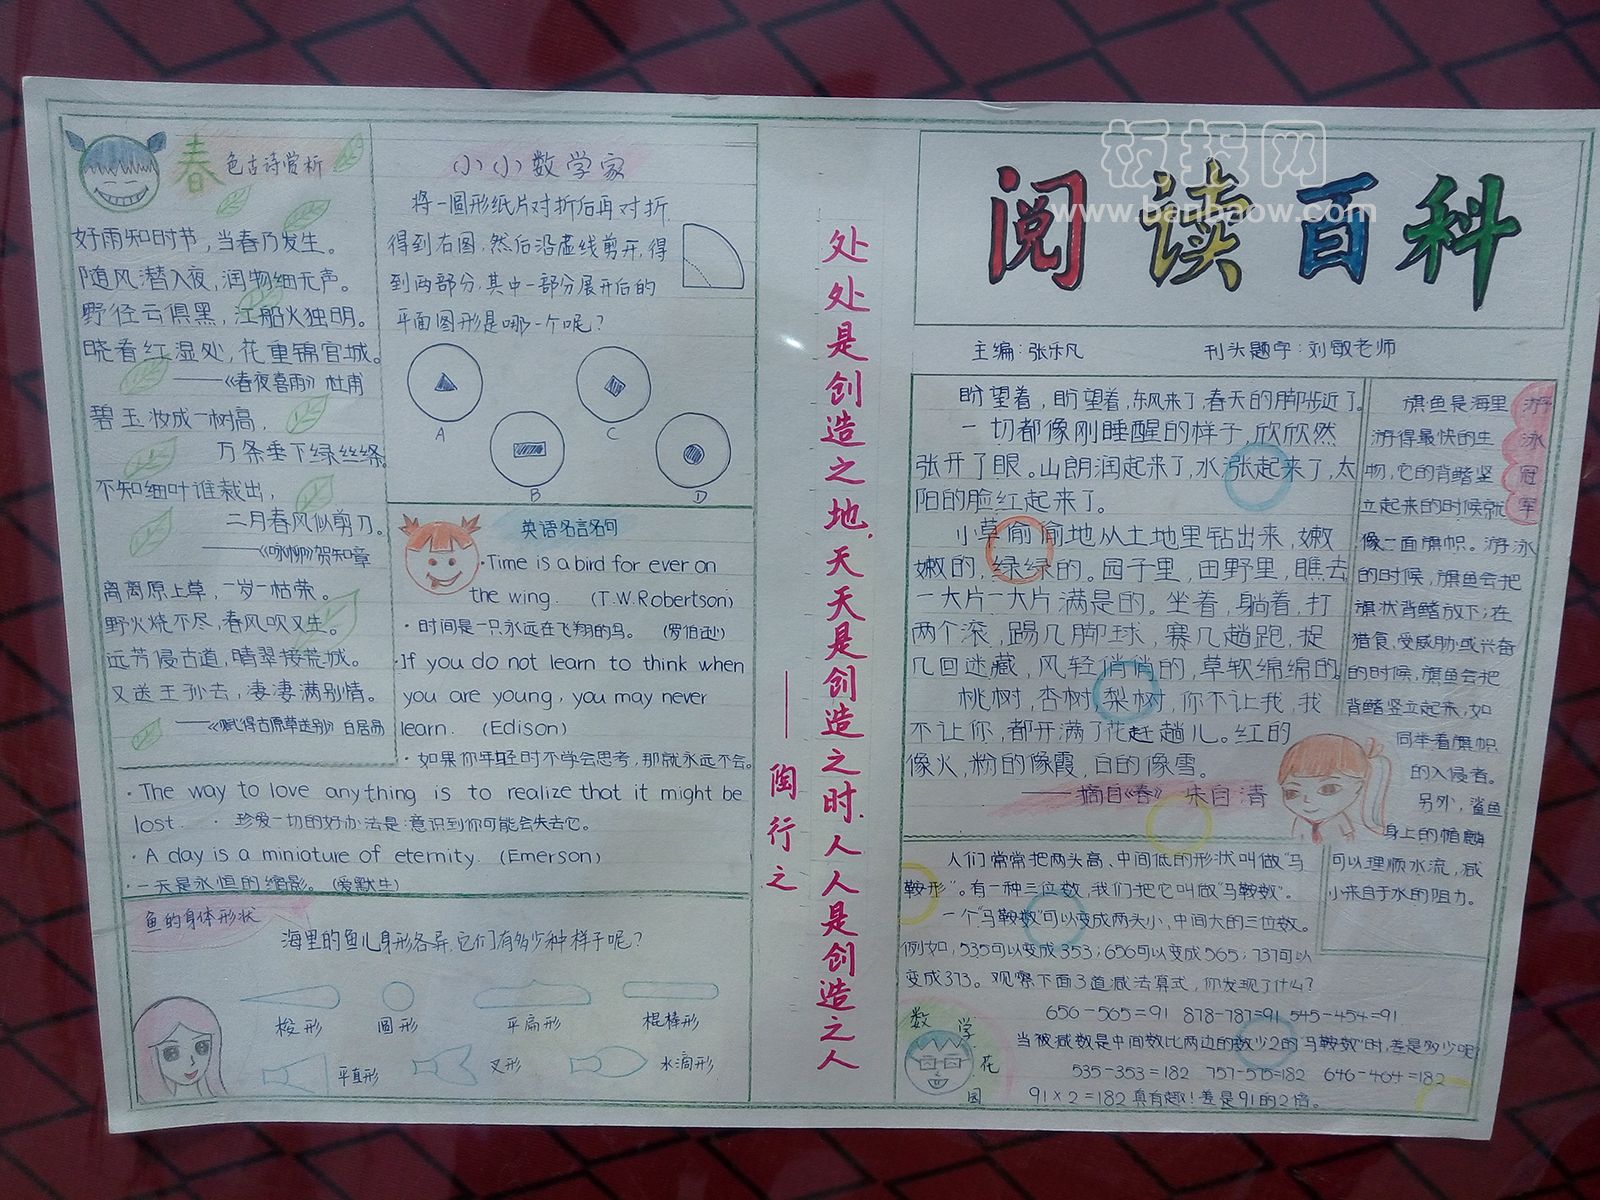 板报网
www.banbaow.com
阅读百科
主编:张乐凡
刊头题字:刘敏老师
春色古诗赏析
好雨知时节,当春乃发生。
随风潜入夜,润物细无声。
野径云俱黑,江船火独明。
晓看红湿处,花重锦官城。
——《春夜喜雨》杜甫
碧玉妆成一树高,
万条垂下绿丝绦
不知细叶谁裁出,
二月春风似剪刀。
——《咏柳》贺知章
离离原上草,一岁一枯荣。
野火烧不尽,春风吹又生。
远芳侵古道,晴翠接荒城。
又送王孙去,凄凄满别情。
——《赋得古原草送别》白居易
小小数学家
将一圆形纸片对折后再对折
得到右图,然后沿虚线剪开,得
到两部分,其中一部分展开后的
平面图形是哪一个呢?
A
B
C
D
英语名言名句
·Time is a bird for ever on
the wing. (T.W.Robertson)
·时间是一只永远在飞翔的鸟。(罗伯逊)
·If you do not learn to think when
you are young, you may never
learn. (Edison)
·如果你年轻时不学会思考,那就永远不会。
·The way to love anything is to realize that it might be
lost. ·珍爱一切的好办法是:意识到你可能会失去它。
·A day is a miniature of eternity. (Emerson)
·一天是永恒的缩影。(爱默生)
鱼的身体形状
海里的鱼儿身形各异,它们有多少种样子呢?
梭形
圆形
平扁形
棍棒形
平直形
叉形
水滴形
处处是创造之地,天天是创造之时,人人是创造之人
——陶行之
盼望着,盼望着,东风来了,春天的脚步近了
一切都像刚睡醒的样子,欣欣然
张开了眼。山朗润起来了,水涨起来了,太
阳的脸红起来了。
小草偷偷地从土地里钻出来,嫩
嫩的,绿绿的。园子里,田野里,瞧去
一大片一大片满是的。坐着,躺着,打
两个滚,踢几脚球,赛几趟跑,捉
几回迷藏,风轻俏俏的,草软绵绵的。
桃树,杏树,梨树,你不让我,我
不让你,都开满了花赶趟儿。红的
像火,粉的像霞,白的像雪。
——摘自《春》 朱自清
游泳冠军
旗鱼是海里
游得最快的生
物,它的背鳍竖
立起来的时候就
像一面旗帜。游泳
的时候,旗鱼会把
旗状背鳍放下;在
猎食,受威胁或兴奋
的时候,旗鱼会把
背鳍竖立起来,如
同举着旗帜
的入侵者。
另外,鲨鱼
身上的楯鳞
可以理顺水流,减
小来自于水的阻力。
人们常常把两头高、中间低的形状叫做“马
鞍形”。有一种三位数,我们把它叫做“马鞍数”。
一个“马鞍数”可以变成两头小,中间大的三位数。
例如,535可以变成353;656可以变成565;737可以
变成373。观察下面3道减法算式,你发现了什么?
656-565=91 878-787=91 545-454=91
当被减数是中间数比两边的数少2的“马鞍数”时,差是多少呢?
535-353=182 757-575=182 646-464=182
91×2=182 真有趣!差是91的2倍。
数学花园